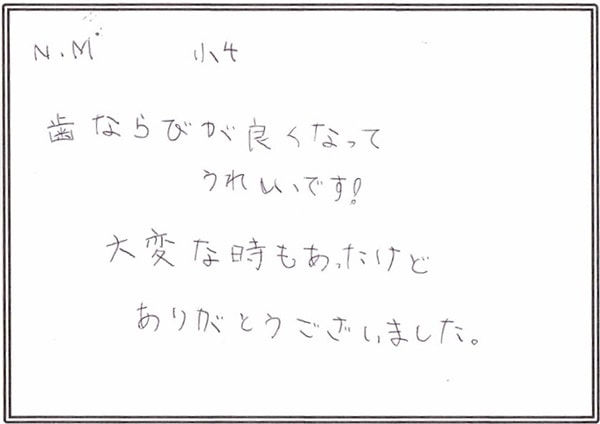 N.M 小4
歯ならびが良くなって
うれしいです!
大変な時もあったけど
ありがとうございました。